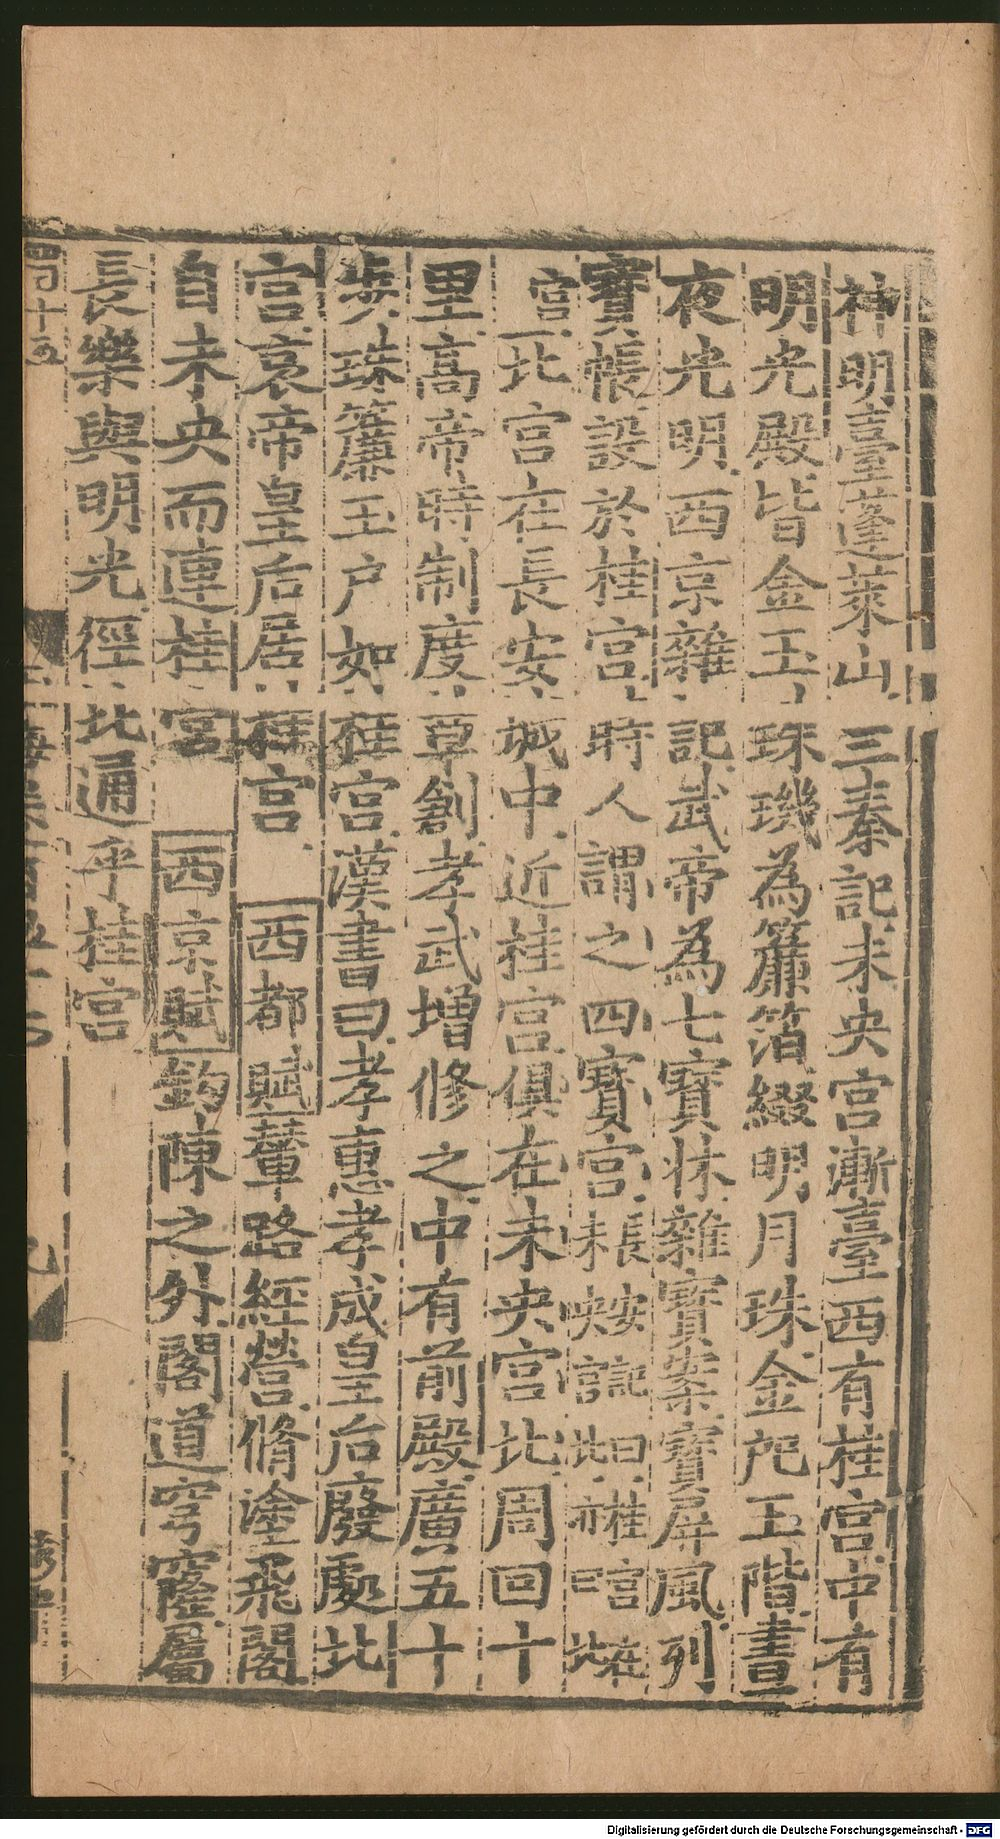 神明臺蓬萊山三秦記未央宮漸臺西有桂宮中有
明光殿皆金玉珠璣為簾箔綴明月珠金戺玉階晝
夜光明西京雜記武帝為七寶牀雜寶案寶屏風列
寶帳設於桂宮時人謂之四寶宮
宮北宮在長安城中近桂宮俱在未央宮北周回十
里高帝時制度草創孝武增修之中有前殿廣五十
步珠簾玉户如桂宮漢書曰孝惠孝成皇后廢處北
宮哀帝皇后居桂宮 西都賦輦路經營脩塗飛閣
自未央而連桂宮 西京賦鉤陳之外閣道穹窿屬
長樂與明光徑北通乎桂宮
四十五
九
Digitalisierung gefördert durch die Deutsche Forschungsgemeinschaft - DFG